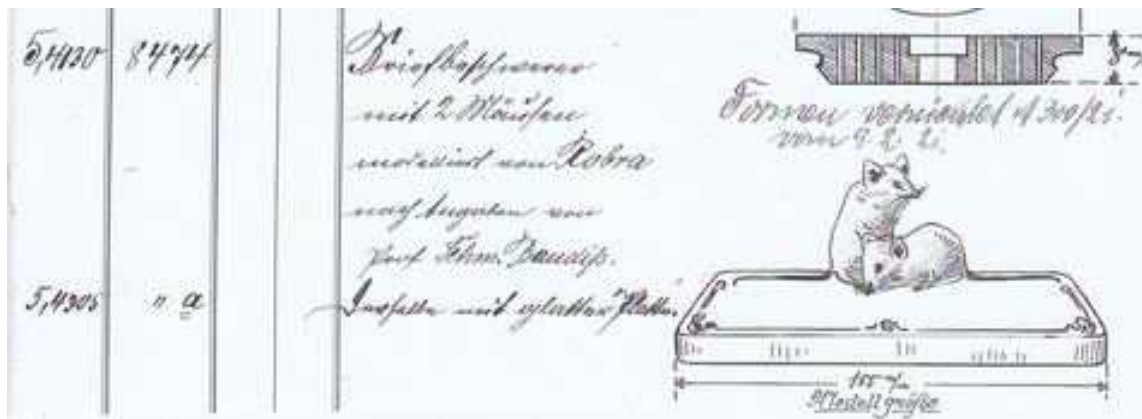 5,4130 8474 Briefbeschwerer
mit 2 Mäusen
modelliert von Robra
nach Angaben von
Prof. Frhrn. Baudiß.
5,4305 " a Derselbe mit glatter Platte.
Formen vernichtet lt 300/21.
vom 9. 2. 21.
155 m/m
Modellgröße